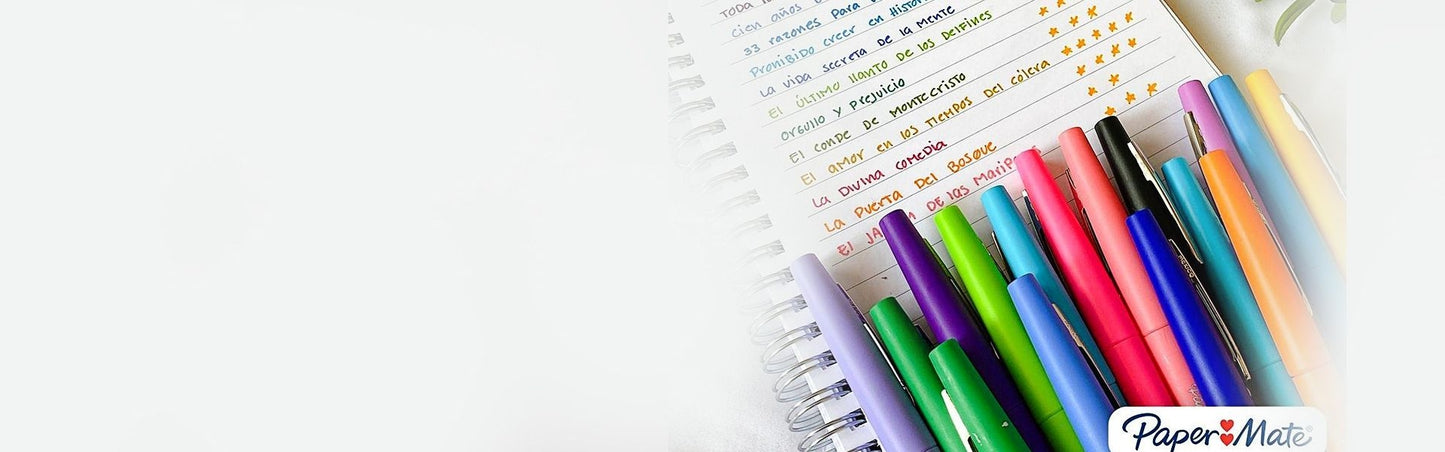 Toda
cien años
33 razones para
Prohibido creer en Histori
La vida secreta de la mente
El último llanto de los delfines
Orgullo y prejuicio
El conde de Montecristo
El amor en los tiempos del cólera
La Divina comedia
La Puerta del Bosque
El Ja de las Marip
Paper Mate®